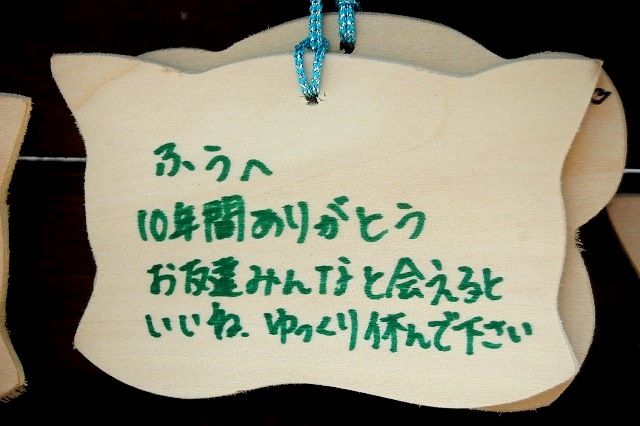 ふうへ
10年間ありがとう
お友達みんなと会えると
いいね。ゆっくり休んで下さい